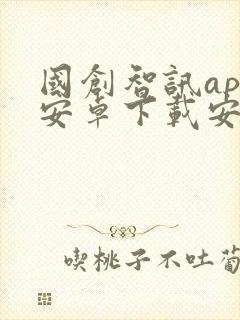 國創智訊ap
安卓下載安
喫桃子不吐葡